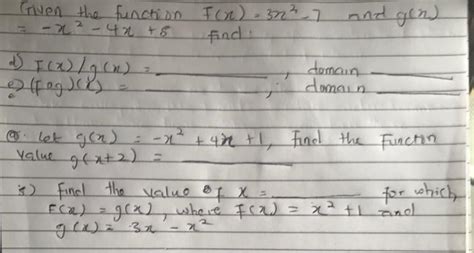 Given the function F(x) = 3x² - 7 and g(x)
= -x² - 4x + 5 find:
d) F(x)/g(x) = ________, domain ________
e) (fog)(x) = ________, domain ________
Let g(x) = -x² + 4x + 1, Find the Function
value g(x+2) = ________
Find the value of x = ________ for which
F(x) = g(x), where F(x) = x² + 1 and
g(x) = 3x - x²